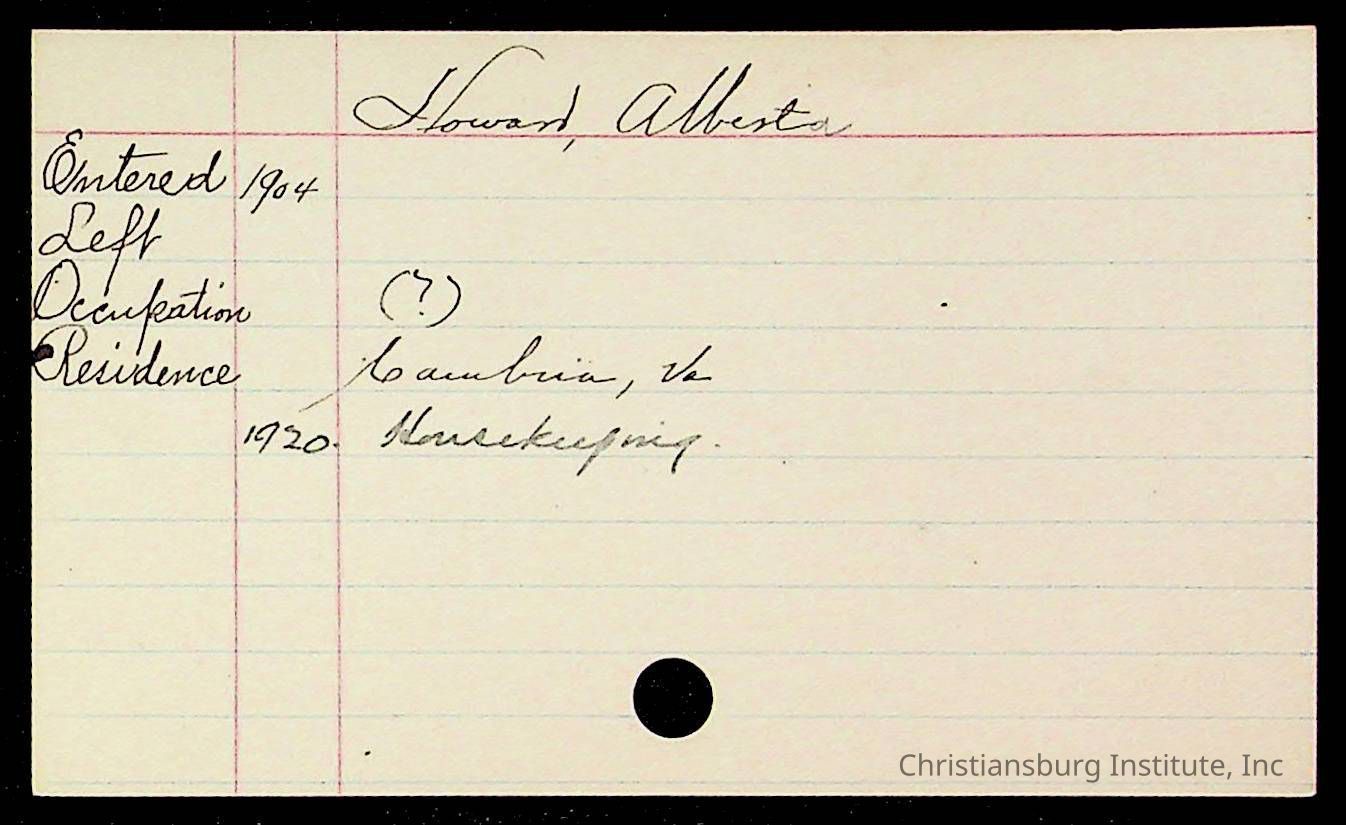 Howard, Alberta
Entered 1904
Left
Occupation (?)
Residence Cambria, Va
1920. Housekeeping.
Christiansburg Institute, Inc